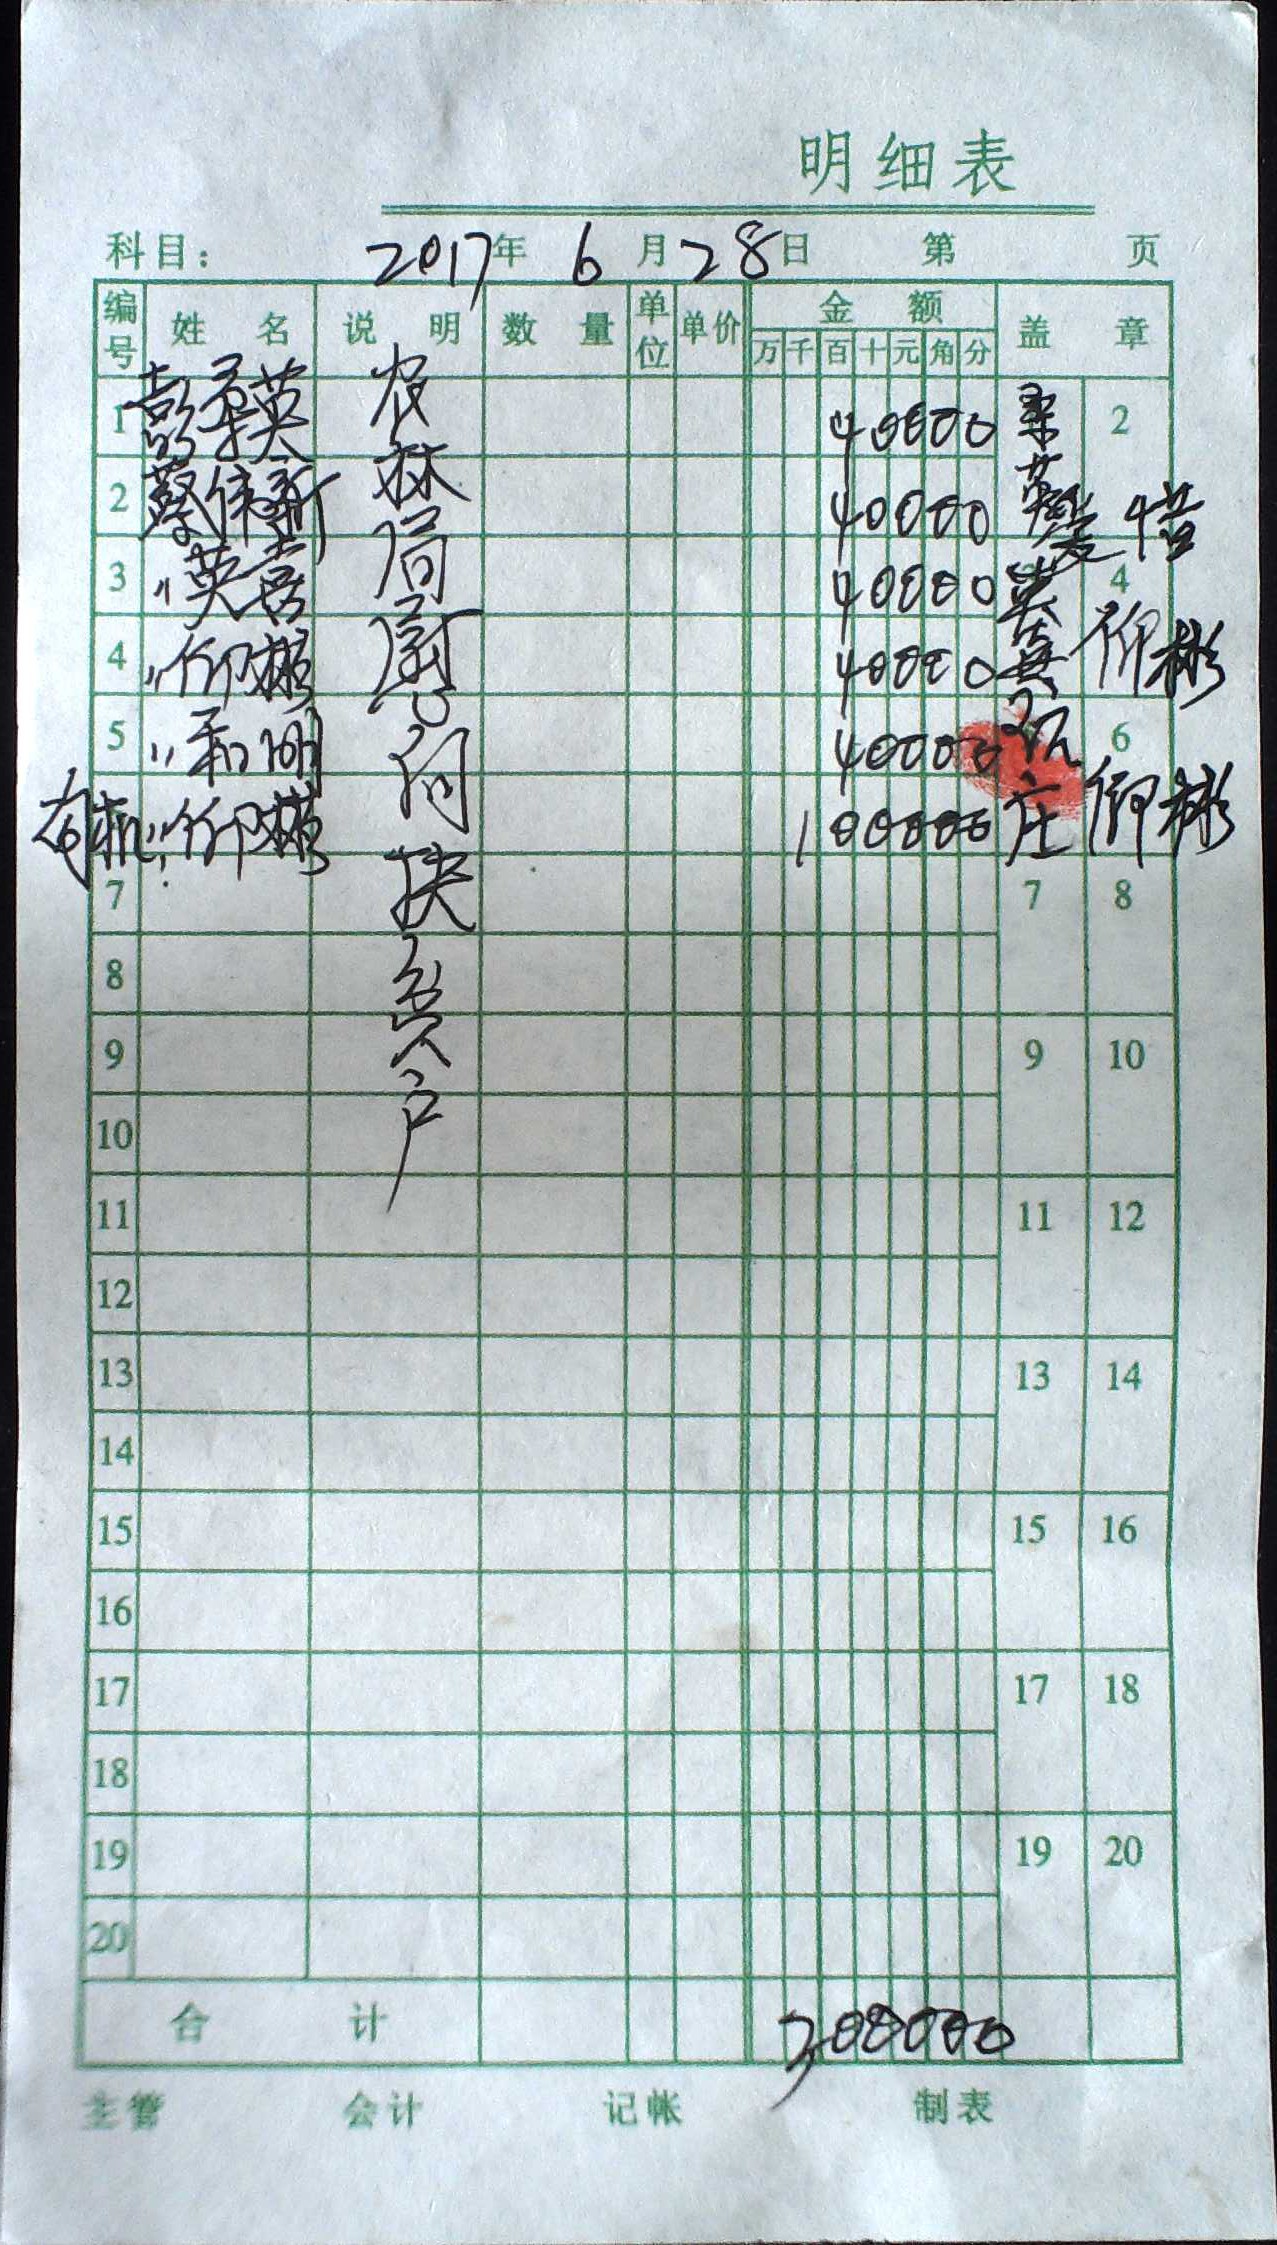 明细表
科目： 2017年 6月28日 第 页
编号 姓名 说明 数量 单位 单价 金额 盖章
万 千 百 十 元 角 分
1 彭柔英 40000 柔英 2
2 蔡伟新 40000
3 〃英喜 40000 英喜 4
4 〃仰彬 40000 仰彬
5 〃和明 40000 6
有机〃仰彬 100000 庄仰彬
农林局慰问扶贫户
7 7 8
8
9 9 10
10
11 11 12
12
13 13 14
14
15 15 16
16
17 17 18
18
19 19 20
20
合计 300000
主管 会计 记帐 制表